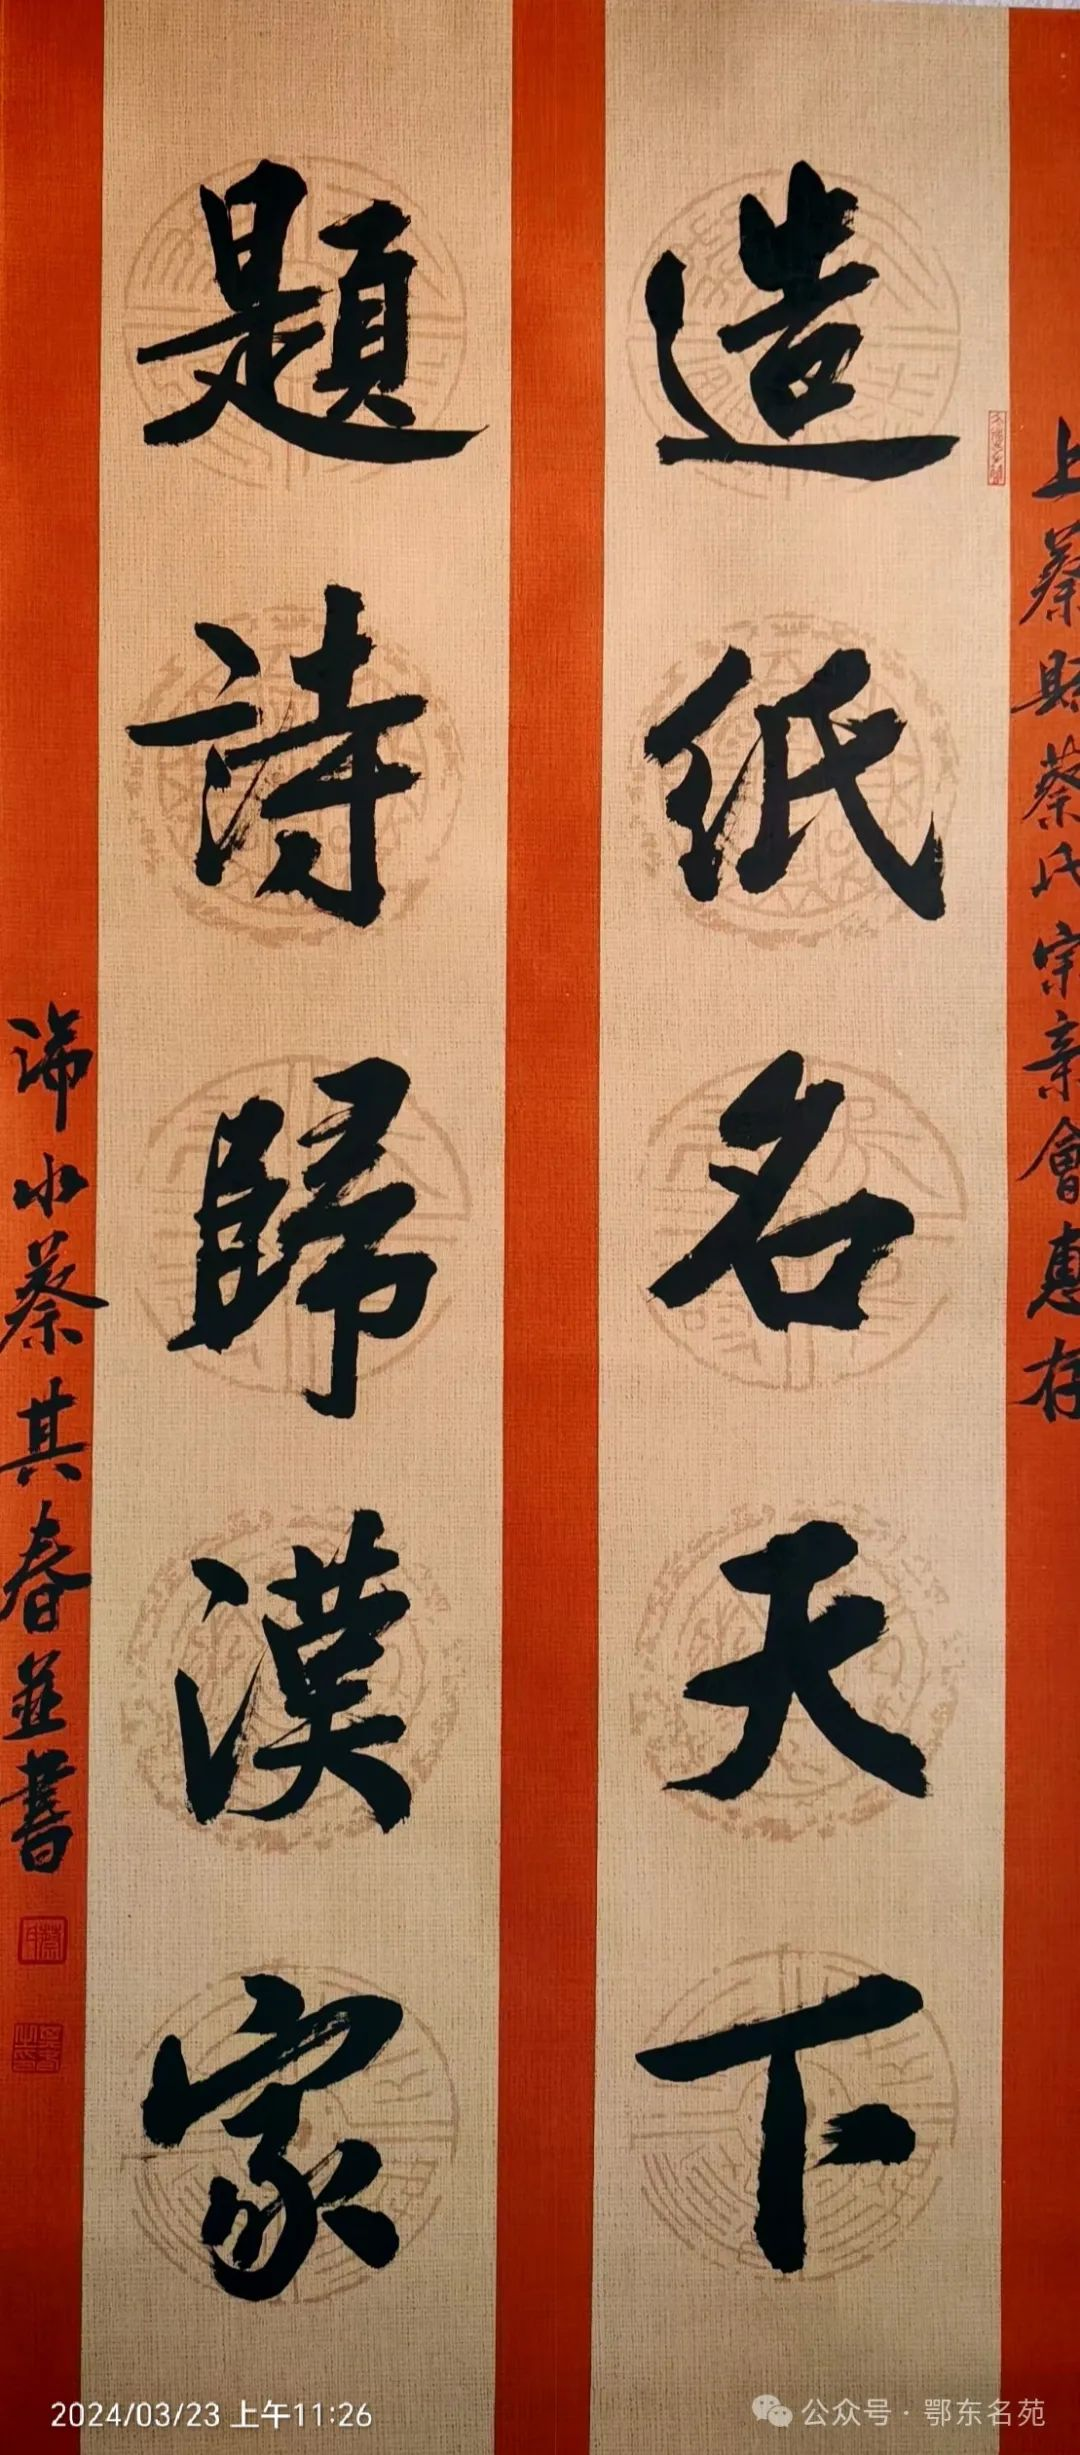 上蔡縣蔡氏宗亲會惠存
造纸名天下
題詩歸漢家
浠水蔡其春並書
2024/03/23 上午11:26
公众号·鄂东名苑